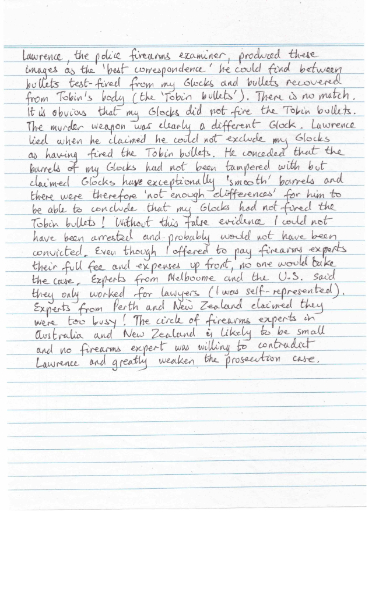 Lawrence, the police firearms examiner, produced these
images as the 'best correspondence' he could find between
bullets test-fired from my Glocks and bullets recovered
from Tobin's body (the 'Tobin bullets'). There is no match.
It is obvious that my Glocks did not fire the Tobin bullets.
The murder weapon was clearly a different Glock. Lawrence
lied when he claimed he could not exclude my Glocks
as having fired the Tobin bullets. He conceded that the
barrels of my Glocks had not been tampered with but
claimed Glocks have exceptionally 'smooth' barrels and
there were therefore 'not enough differences' for him to
be able to conclude that my Glocks had not fired the
Tobin bullets! Without this false evidence I could not
have been arrested and probably would not have been
convicted. Even though I offered to pay firearms experts
their full fee and expenses up front, no one would take
the case. Experts from Melbourne and the U.S. said
they only worked for lawyers (I was self-represented).
Experts from Perth and New Zealand claimed they
were too busy! The circle of firearms experts in
Australia and New Zealand is likely to be small
and no firearms expert was willing to contradict
Lawrence and greatly weaken the prosecution case.